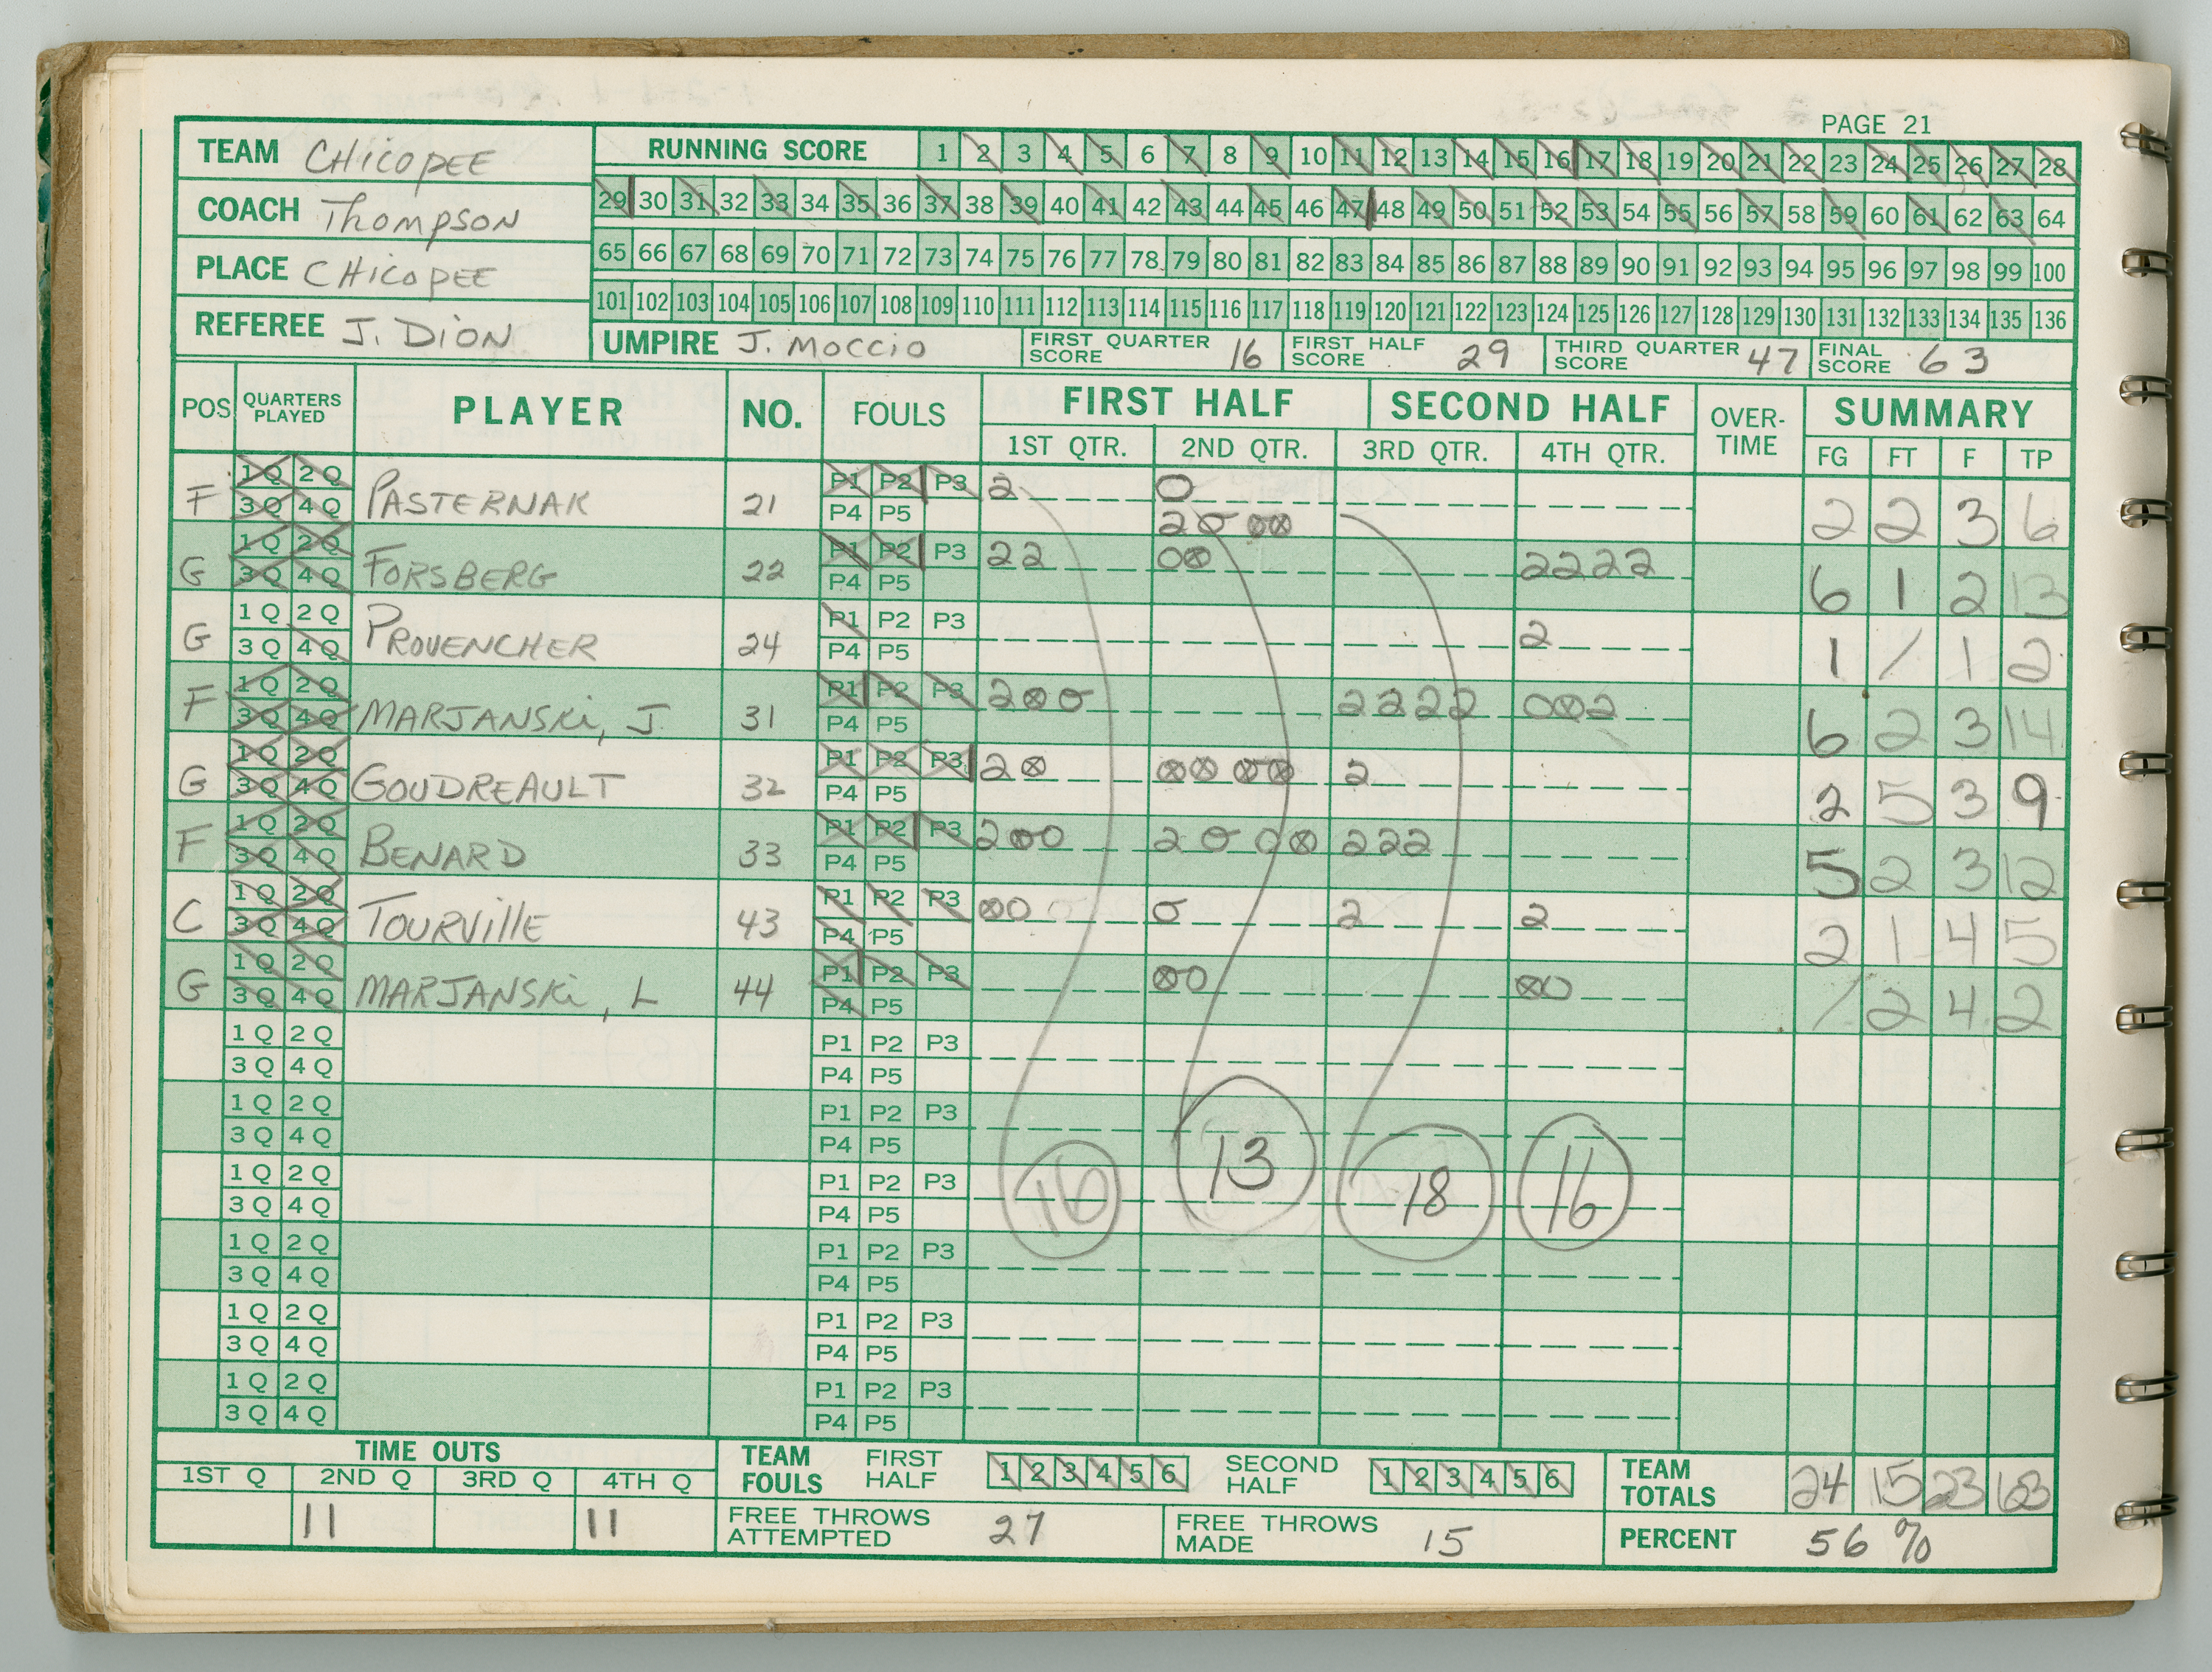 PAGE 21
TEAM CHICOPEE
RUNNING SCORE 1 2 3 4 5 6 7 8 9 10 11 12 13 14 15 16 17 18 19 20 21 22 23 24 25 26 27 28
29 30 31 32 33 34 35 36 37 38 39 40 41 42 43 44 45 46 47 48 49 50 51 52 53 54 55 56 57 58 59 60 61 62 63 64
COACH Thompson
65 66 67 68 69 70 71 72 73 74 75 76 77 78 79 80 81 82 83 84 85 86 87 88 89 90 91 92 93 94 95 96 97 98 99 100
PLACE CHICOPEE
101 102 103 104 105 106 107 108 109 110 111 112 113 114 115 116 117 118 119 120 121 122 123 124 125 126 127 128 129 130 131 132 133 134 135 136
REFEREE J. DION
UMPIRE J. MOCCIO
FIRST QUARTER SCORE 16
FIRST HALF SCORE 29
THIRD QUARTER SCORE 47
FINAL SCORE 63
POS QUARTERS PLAYED PLAYER NO. FOULS FIRST HALF SECOND HALF OVER-TIME SUMMARY
1ST QTR. 2ND QTR. 3RD QTR. 4TH QTR. FG FT F TP
F 1Q 2Q 3Q 4Q PASTERNAK 21 P1 P2 P3 P4 P5 2 O 2 2 3 6
G 1Q 2Q 3Q 4Q FORSBERG 22 P1 P2 P3 P4 P5 22 2222 6 1 2 13
G 1Q 2Q 3Q 4Q PROVENCHER 24 P1 P2 P3 P4 P5 2 1 / 1 2
F 1Q 2Q 3Q 4Q MARJANSKI, J. 31 P1 P2 P3 P4 P5 2 2222 2 6 2 3 14
G 1Q 2Q 3Q 4Q GOUDREAULT 32 P1 P2 P3 P4 P5 2 2 2 5 3 9
F 1Q 2Q 3Q 4Q BENARD 33 P1 P2 P3 P4 P5 2 2 222 5 2 3 12
C 1Q 2Q 3Q 4Q TOURVILLE 43 P1 P2 P3 P4 P5 2 2 2 1 4 5
G 1Q 2Q 3Q 4Q MARJANSKI, L 44 P1 P2 P3 P4 P5 / 2 4 2
1Q 2Q P1 P2 P3
3Q 4Q P4 P5
1Q 2Q P1 P2 P3
3Q 4Q P4 P5
1Q 2Q P1 P2 P3
3Q 4Q P4 P5
16 13 18 16
1Q 2Q P1 P2 P3
3Q 4Q P4 P5
1Q 2Q P1 P2 P3
3Q 4Q P4 P5
1Q 2Q P1 P2 P3
3Q 4Q P4 P5
TIME OUTS
1ST Q 2ND Q 3RD Q 4TH Q
11 11
TEAM FOULS FIRST HALF 1 2 3 4 5 6 SECOND HALF 1 2 3 4 5 6
TEAM TOTALS 24 15 23 63
FREE THROWS ATTEMPTED 27
FREE THROWS MADE 15
PERCENT 56 %